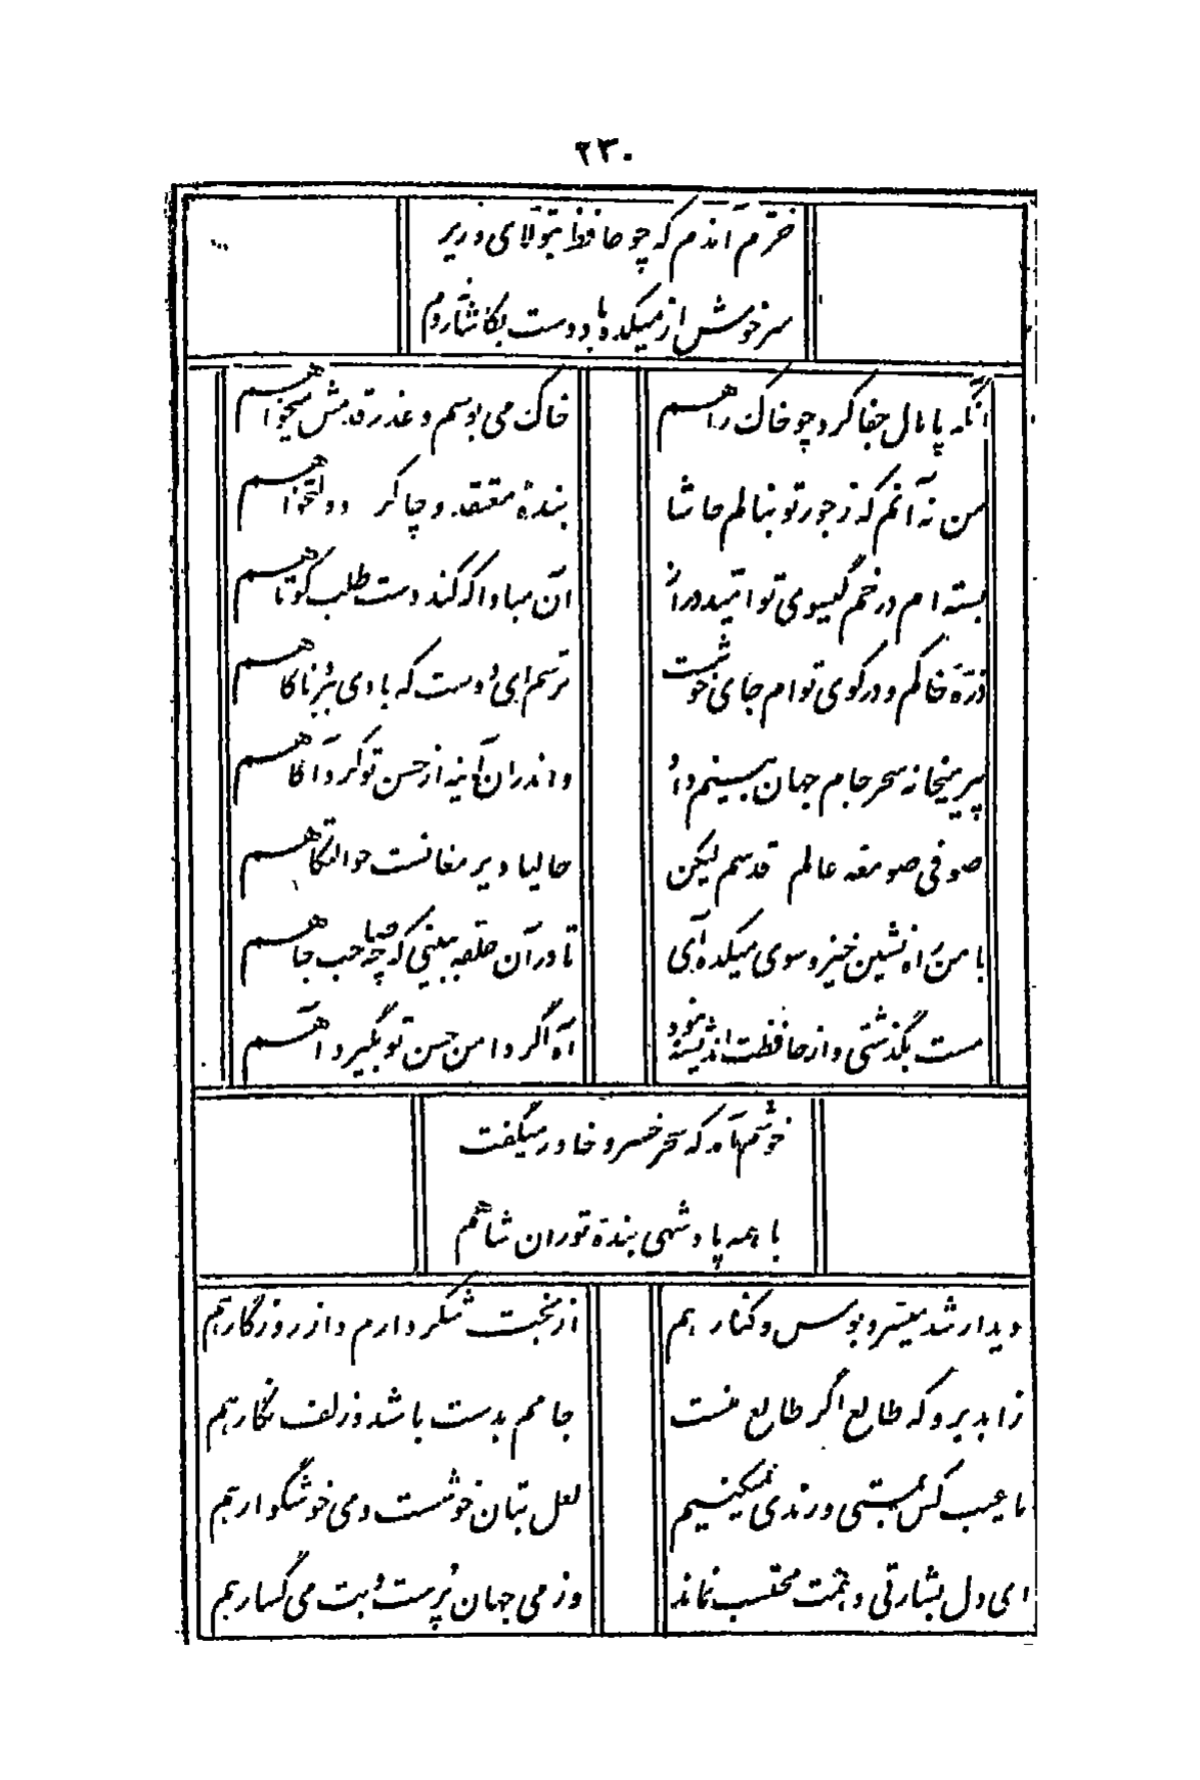 ۲۳۰
خرّم آندم که چو حافظ بتولّای وزیر
سرخوش از میکده با دوست بکاشانه روم
آنکه پامال جفا کرد چو خاک راهم
خاک می بوسم و عذر قدمش میخواهم
من نه آنم که ز جور تو بنالم حاشا
بندهٔ معتقد و چاکر دولتخواهم
بسته ام در خم گیسوی تو امّید دراز
آن مبادا که کند دست طلب کوتاهم
ذرّه خاکم و در کوی توام جای خوشست
ترسم ای دوست که بادی ببرد ناگاهم
پیر میخانه سحر جام جهان بینم داد
واندران آینه از حسن تو کرد آگاهم
صوفی صومعه عالم قدسم لیکن
حالیا دیر مغانست حوالتگاهم
با من راه نشین خیز و سوی میکده آی
تا در آن حلقه ببینی که چه صاحب جاهم
مست بگذشتی و از حافظت اندیشه نبود
آه اگر دامن حسن تو بگیرد آهم
خوشم آمد که سحر خسرو خاور میگفت
با همه پادشهی بنده توران شاهم
دیدار شد میسّر و بوس و کنار هم
از بخت شکر دارم و از روزگار هم
زاهد برو که طالع اگر طالع منست
جامم بدست باشد و زلف نگار هم
ما عیب کس بمستی و رندی نمیکنیم
لعل بتان خوشست و می خوشگوار هم
ای دل بشارتی دهمت محتسب نماند
وز می جهان پرست و بت می گسار هم